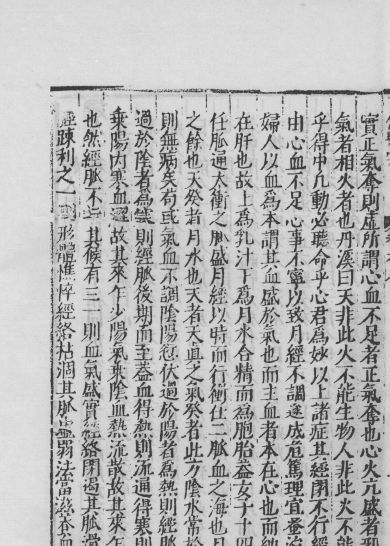 實正氣奪則虛所謂心血不足者正氣奪也心火亢盛者邪
氣者相火者也丹溪曰天非此火不能生物人非此火不能
乎得中凡動必聽命乎心君為妙以上諸症其經閉不行經
由心血不足心事不寧以致月經不調遂成危篤理宜蚤治
婦人以血為本謂其血盛於氣也而主血者本在心也而納
在肝也故上為乳汁下為月水合精而為胞胎益女子十四
任脈通太衝之脈盛月經以時而行衝任二脈血之海也月
之餘也天癸者月水也天者天真之氣癸者此方陰水常於
則無病矣苟或氣血不調陰陽愆伏過於陽者為熱則經脈
過於陰者為寒則經脈後期而至蓋血得熱則流通得寒則
乗陽內寒血澁故其來乍少陽氣乗陰血熱流散故其來乍
也然經脈不 其候有三一則血氣盛實經絡閉遏其脈滑
踈利之一 形體憔悴經絡枯涸其脈虛弱法當滋養血